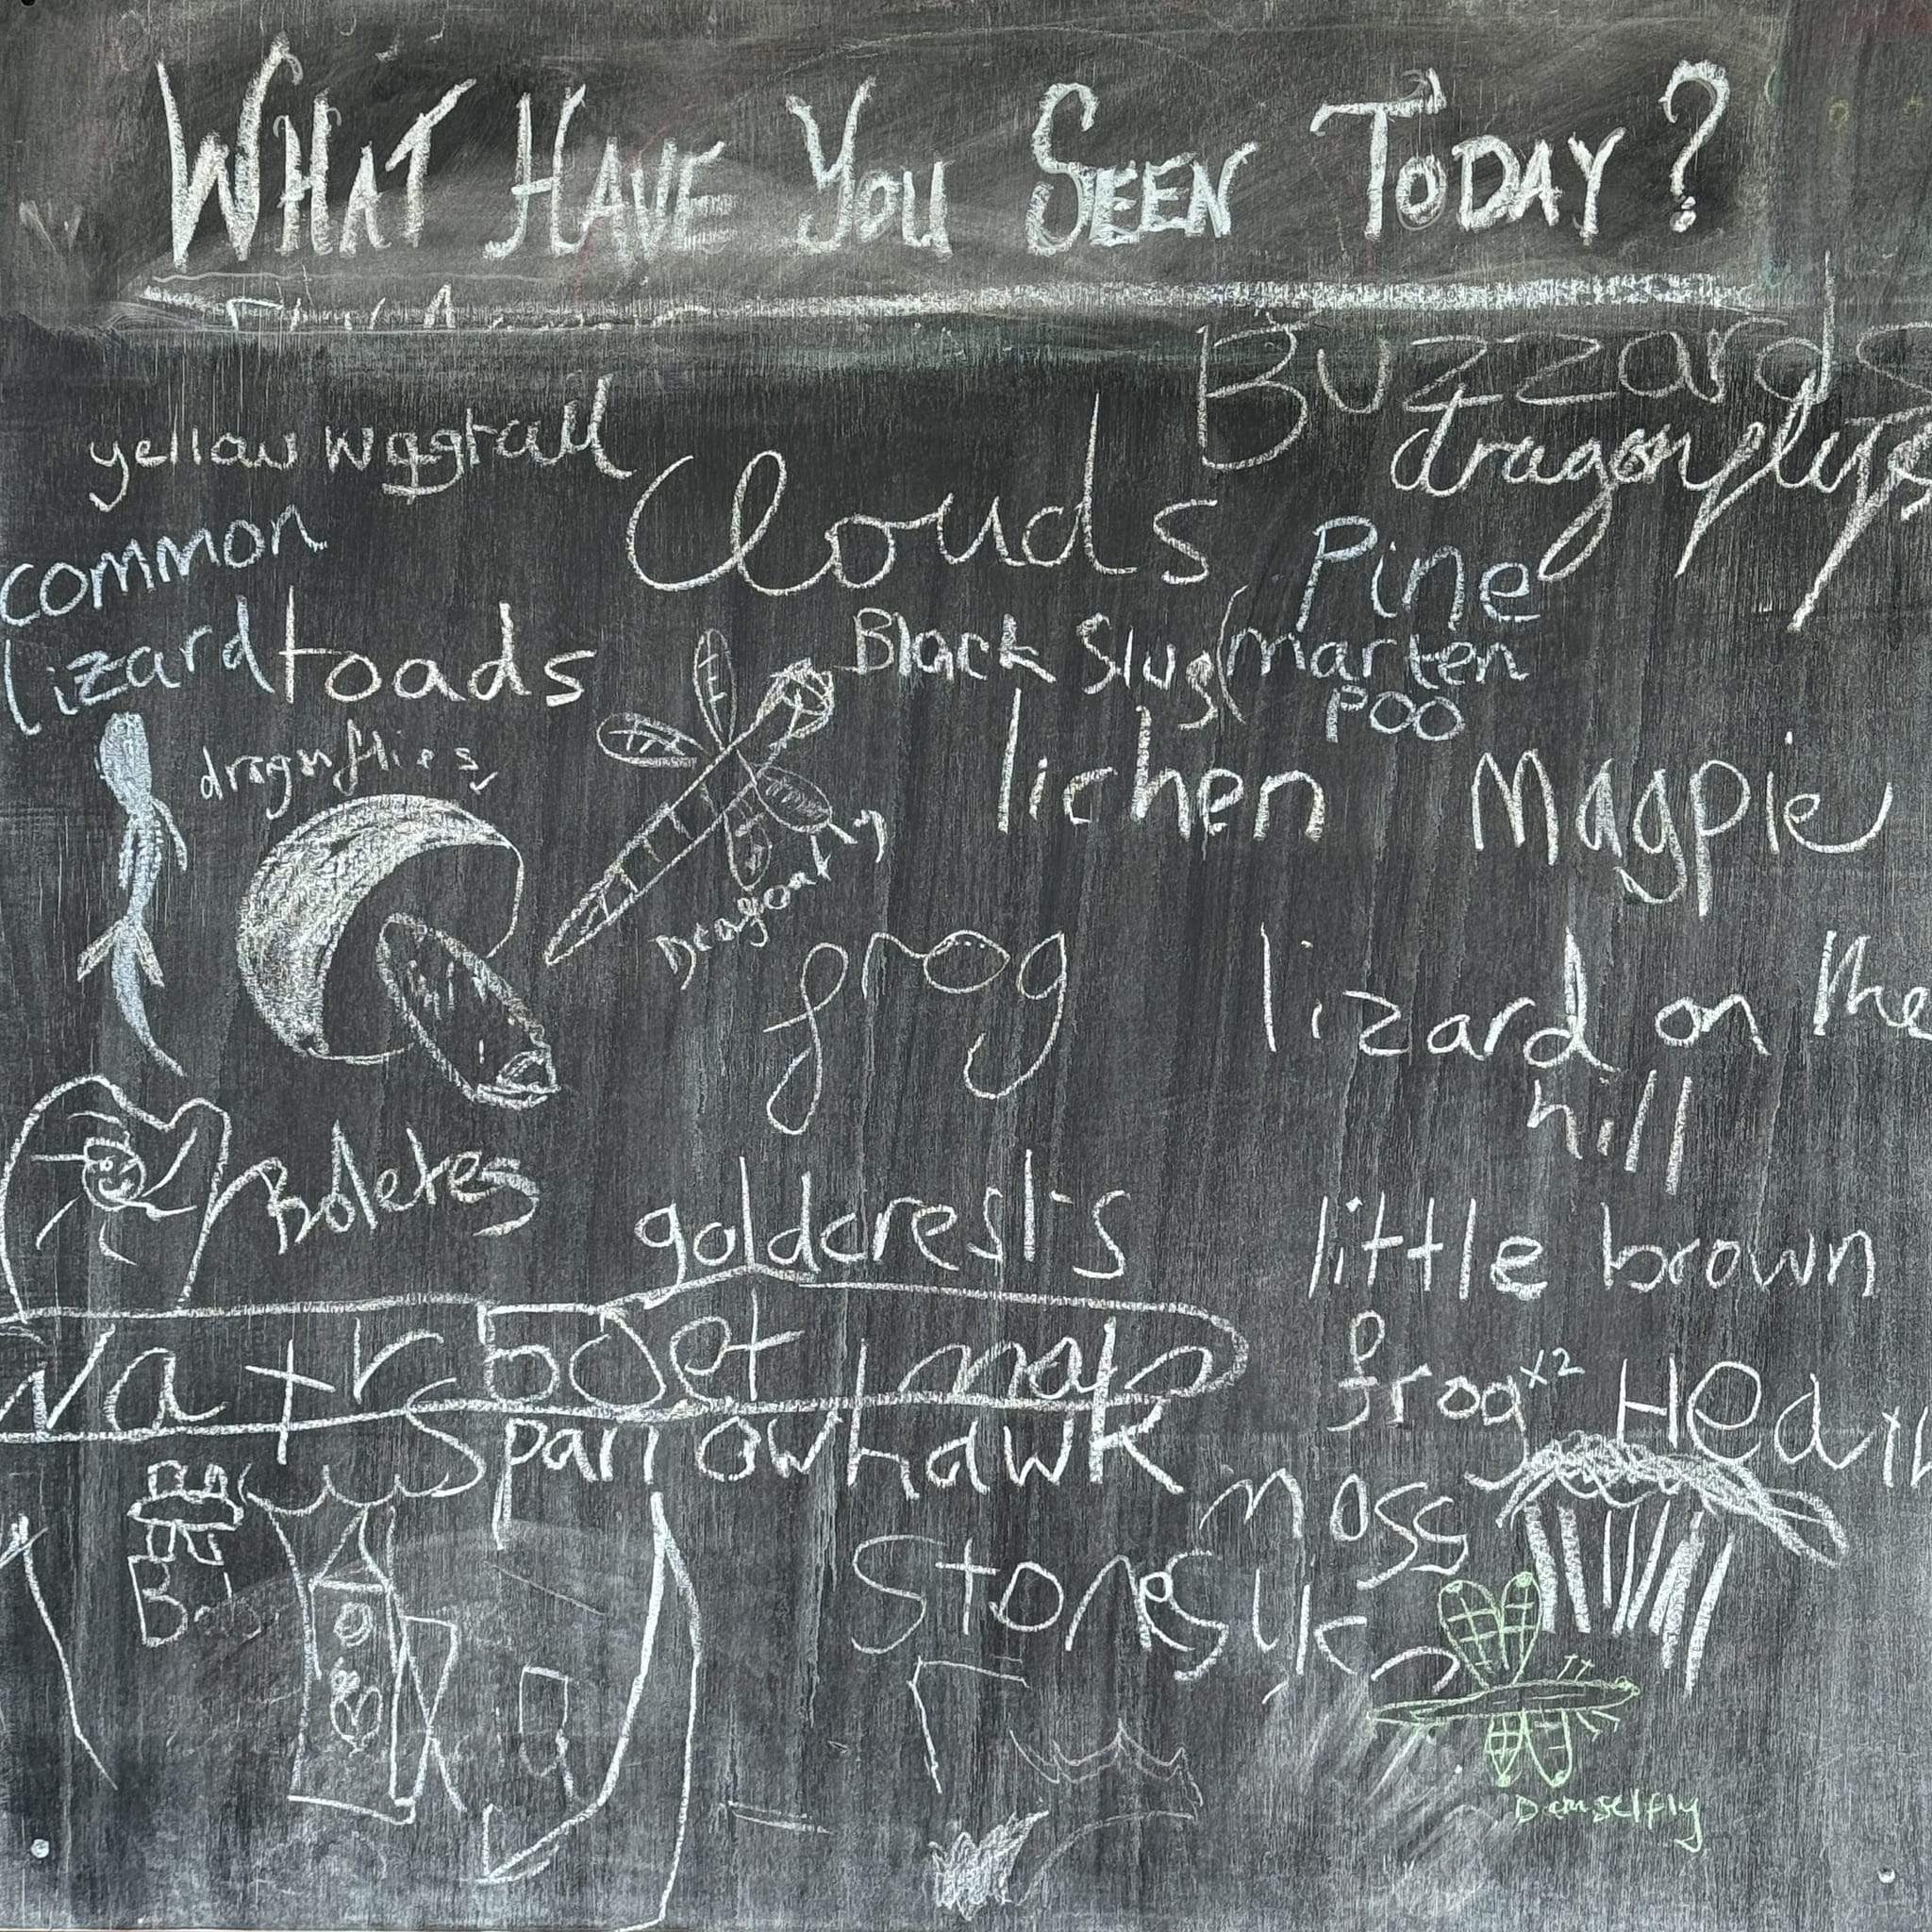 WHAT HAVE YOU SEEN TODAY?
Buzzards
yellow wagtail
dragonflys
Clouds
common
lizard
toads
Pine
marten
poo
Black Slug
dragnflies
lichen
Magpie
frog
lizard on the
hill
Boletes
goldcrests
little brown
frog x2
Sparrowhawk
moss
Stones
Damselfly